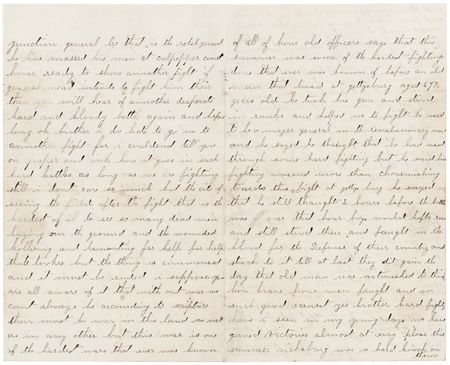 junction general lee that is the rebel general
he has massed his men at culpipper court
house ready to show annother fight if
general mead intends to fight him their
then you will hear of annother desperate
hard and bloody battle again and before
long oh brother i do hate to go in to
annother fight for i couldend tell you
on paper and ink how it goes in such
hard battles as long as we are fighting
still i dont care so much but the is of
seeing the field after the fight that is the
hardest of all to see so many dead men
laying on the ground and the wounded
hollering and lamenting for help for help
that touches but the thing is commenced
and it must be ended i suppose you
are all aware of it that with out war we
cant always be according to scripture
there must be war in this land as well
as in any other but this war is one
of the hardest wars that ever was known
of all of hour old officers says that this
summer was some of the hardest fighting
done that ever was known of before an old
man that lived at gettysburg aged 67
years old he took his gun and stood
in ranks and helped us to fight he used
to be a major general in the revolutionary war
and he sayed he thought that he had went
through some hard fighting but he said his
fighting was no more than
towards this fight at gettysburg he sayed
that he still thought 2 hours before the battle
was over that hour boys would hafto run
and still stood their and faught in the
blood for the defense of their country and
stuck to it till at last they did gain the
day that old man was astonished to think
how hour men faught and
such good earnest yes brother hard fights
have i seen in my young days we have
gained victories almost at every place this
summer vicksburg was a hard knock on
them